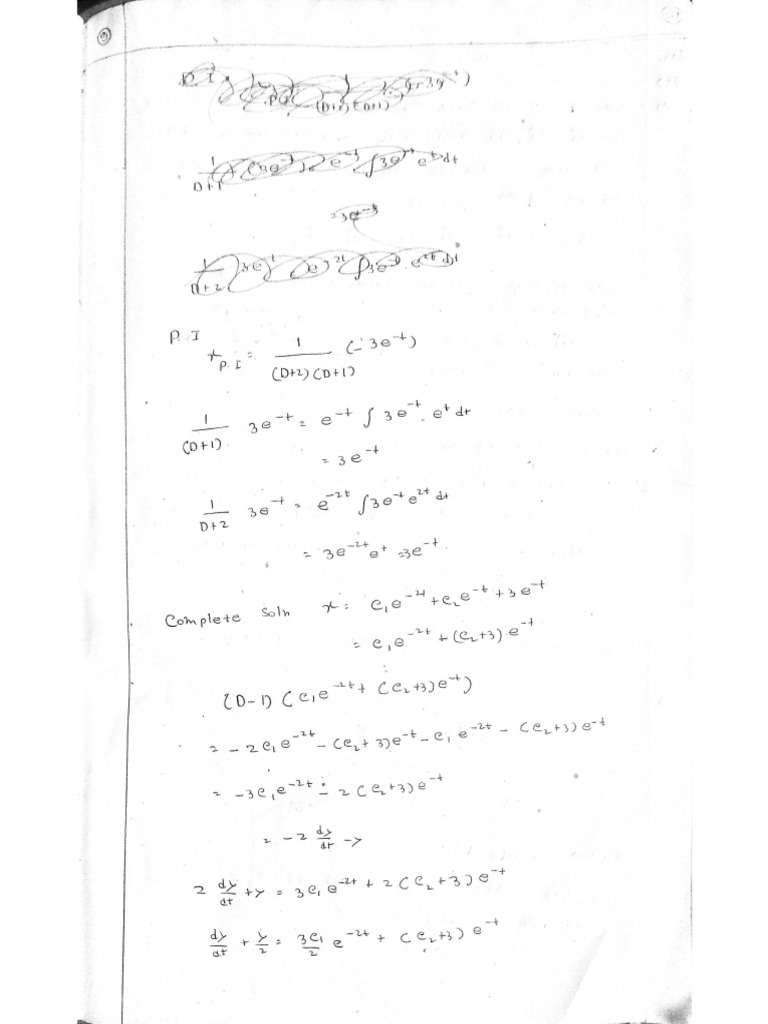 9
P.I
x_{P.I} = \frac{1}{(D+2)(D+1)} (-3e^{-t})
\frac{1}{(D+1)} 3e^{-t} = e^{-t} ∫ 3e^{-t}. e^{t} dt
= 3e^{-t}
\frac{1}{D+2} 3e^{-t} = e^{-2t} ∫3e^{-t} e^{2t} dt
= 3e^{-2t} e^{t} = 3e^{-t}.
Complete Soln x = c₁e^{-2t} + c₂e^{-t} + 3e^{-t}
= c₁e^{-2t} + (c₂+3) e^{-t}
(D-1) (c₁e^{-2t} + (c₂+3)e^{-t})
= -2c₁e^{-2t} - (c₂+3)e^{-t} - c₁e^{-2t} - (c₂+3)e^{-t}
= -3c₁e^{-2t} - 2(c₂+3)e^{-t}
= -2 \frac{dy}{dt} - y
2 \frac{dy}{dt} + y = 3c₁e^{-2t} + 2(c₂+3)e^{-t}
\frac{dy}{dt} + \frac{y}{2} = \frac{3c₁}{2} e^{-2t} + (c₂+3) e^{-t}